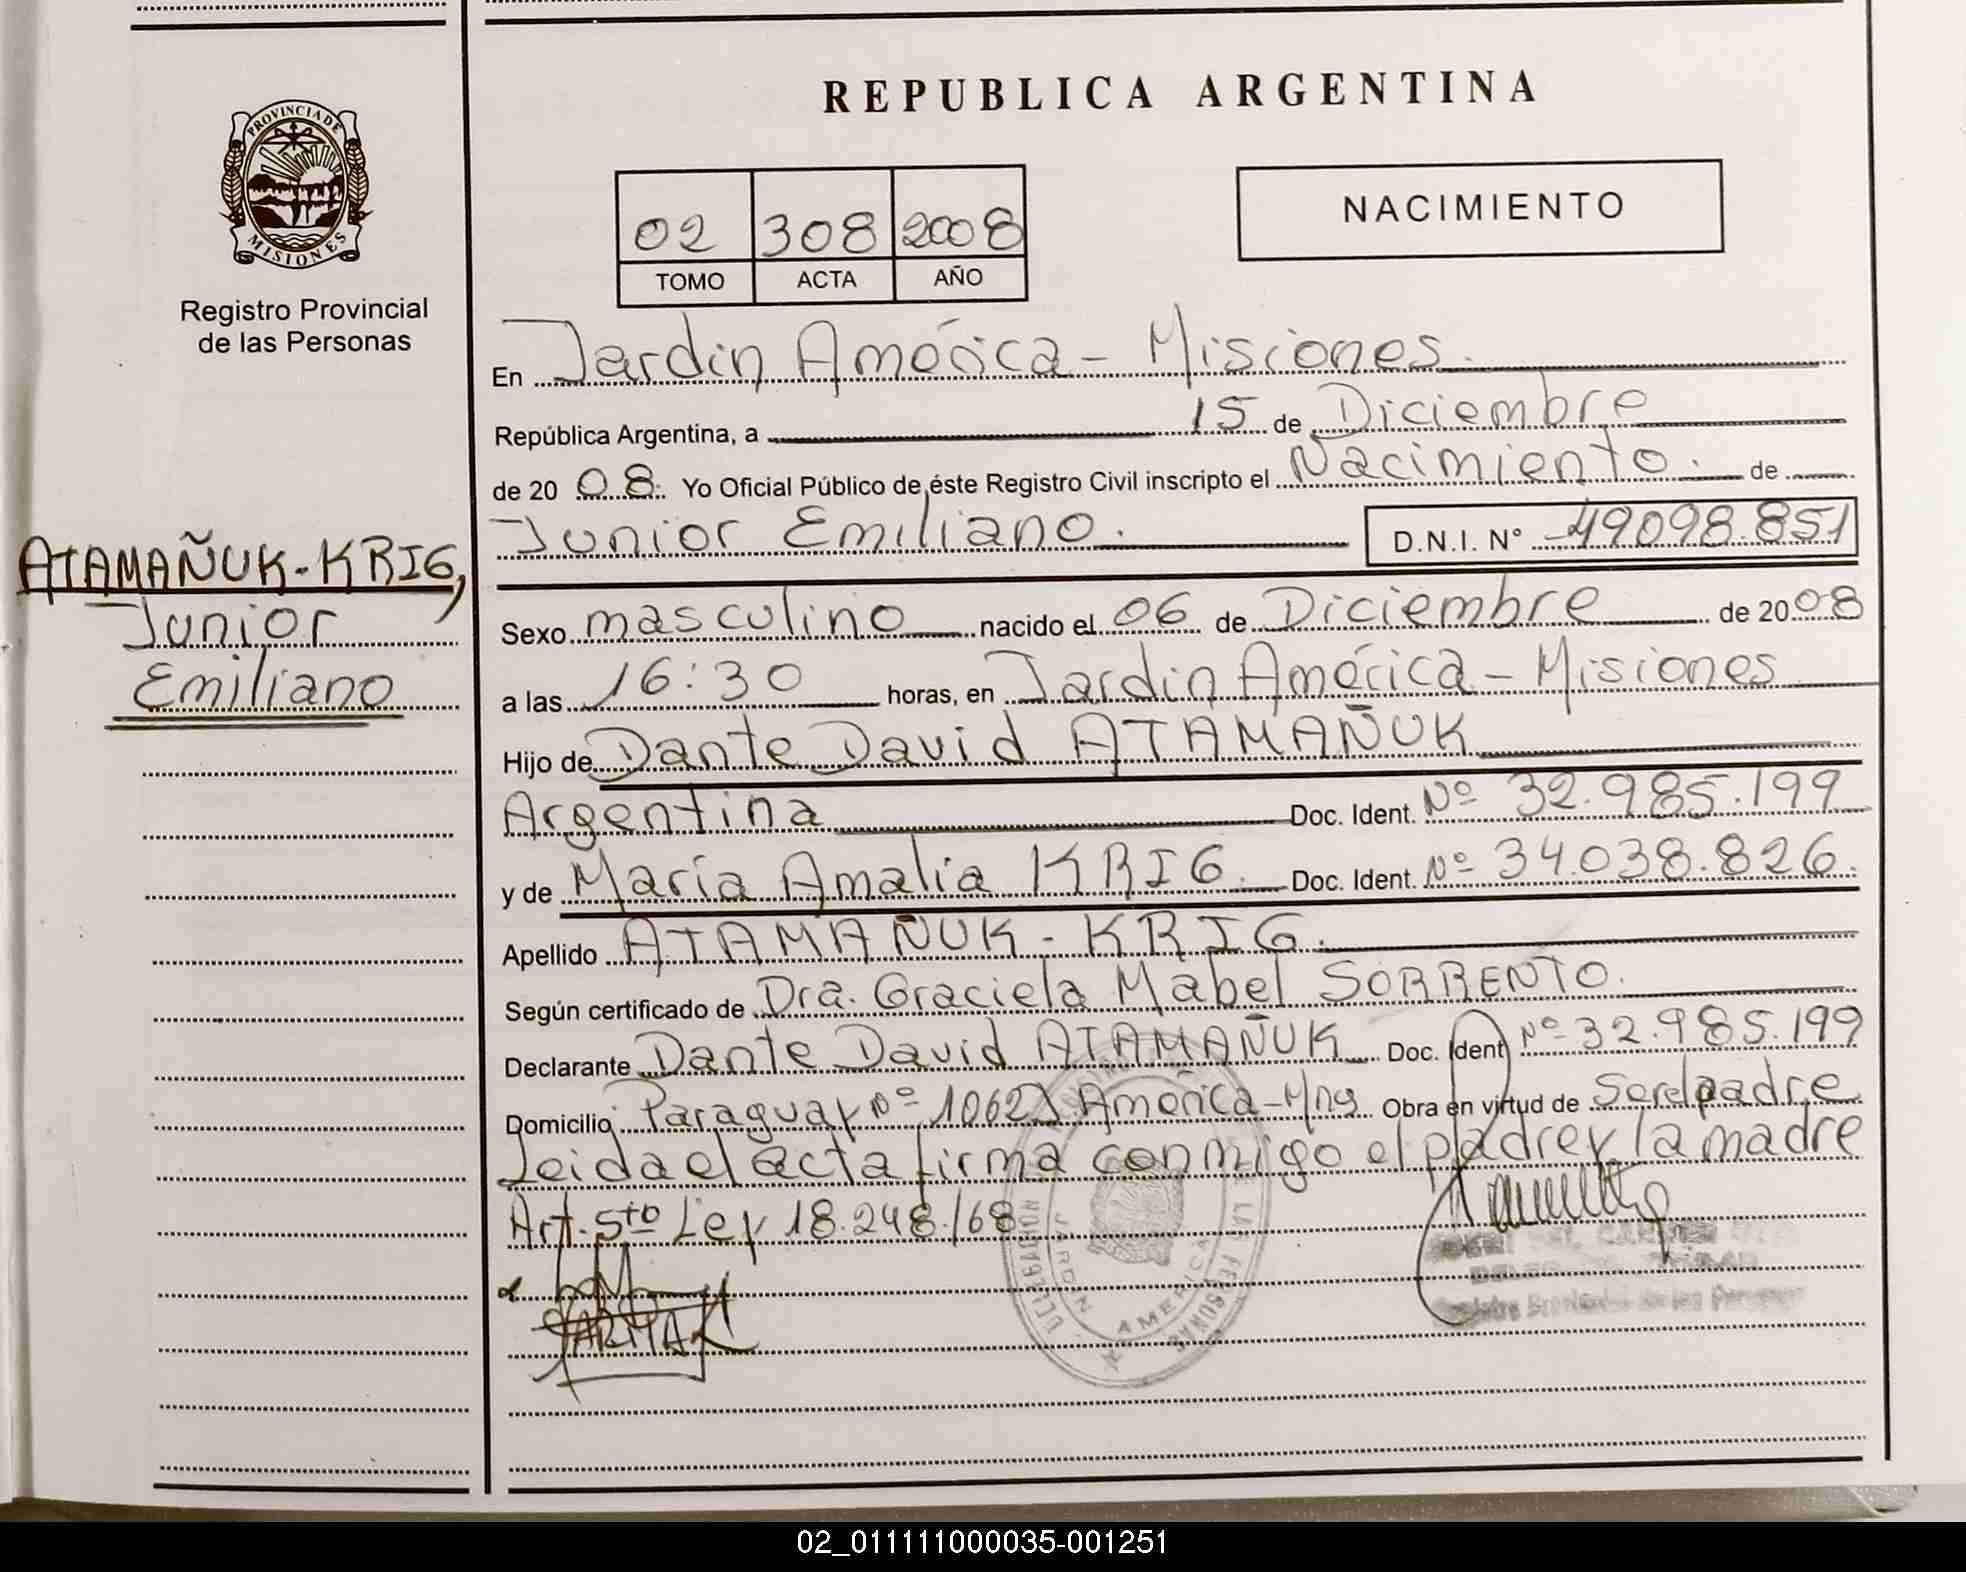 PROVINCIA DE
MISIONES
Registro Provincial
de las Personas
ATAMAÑUK-KRIG,
Junior
Emiliano
REPUBLICA ARGENTINA
02 308 2008
TOMO ACTA AÑO
NACIMIENTO
En Jardín América - Misiones.
República Argentina, a 15 de Diciembre
de 20 08. Yo Oficial Público de éste Registro Civil inscripto el Nacimiento. de
Junior Emiliano. D.N.I. Nº 49098.851
Sexo masculino nacido el 06 de Diciembre de 2008
a las 16:30 horas, en Jardín América - Misiones
Hijo de Dante David ATAMAÑUK
Argentina Doc. Ident. Nº 32.985.199
y de María Amalia KRIG. Doc. Ident. Nº 34.038.826.
Apellido ATAMAÑUK - KRIG.
Según certificado de Dra. Graciela Mabel SORRENTO.
Declarante Dante David ATAMAÑUK Doc. Ident Nº 32.985.199
Domicilio Paraguay Nº 1062 J. América - Mns Obra en virtud de Ser el padre
Leida el acta firma conmigo el padre y la madre
Art. 5to Ley 18.248/68
JARDIN AMERICA
02_011111000035-001251